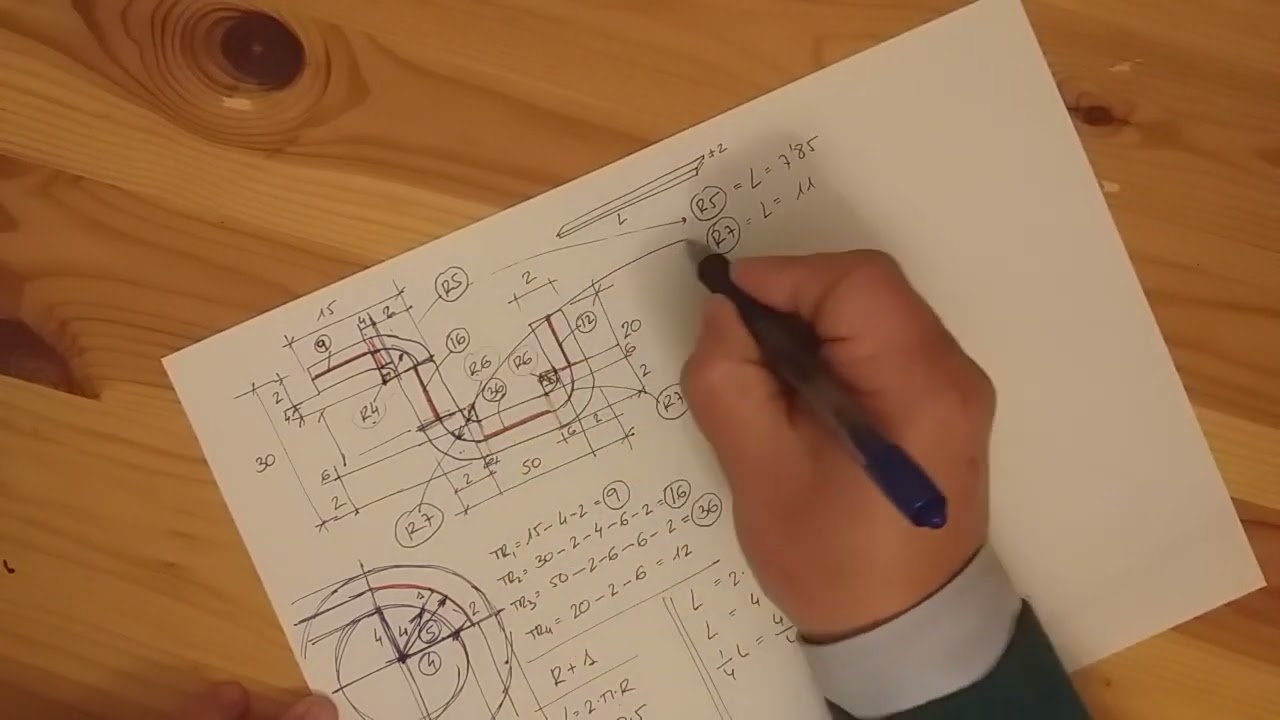 ±2
L
R5 = L = 7'85
R7 = L = 11
R5
2
15
4 2
9
16
12
20
6
2
R6
R6
36
R4
R7
2
4
30
6
2
50
2
6 2
R7
TR1 = 15 - 4 - 2 = 9
TR2 = 30 - 2 - 4 - 6 - 2 = 16
TR3 = 50 - 2 - 6 - 6 - 2 = 36
TR4 = 20 - 2 - 6 = 12
4 4 5 2
4
R + 1
L = 2·π·R
L = 2·
L = 4
1/4 L = 4